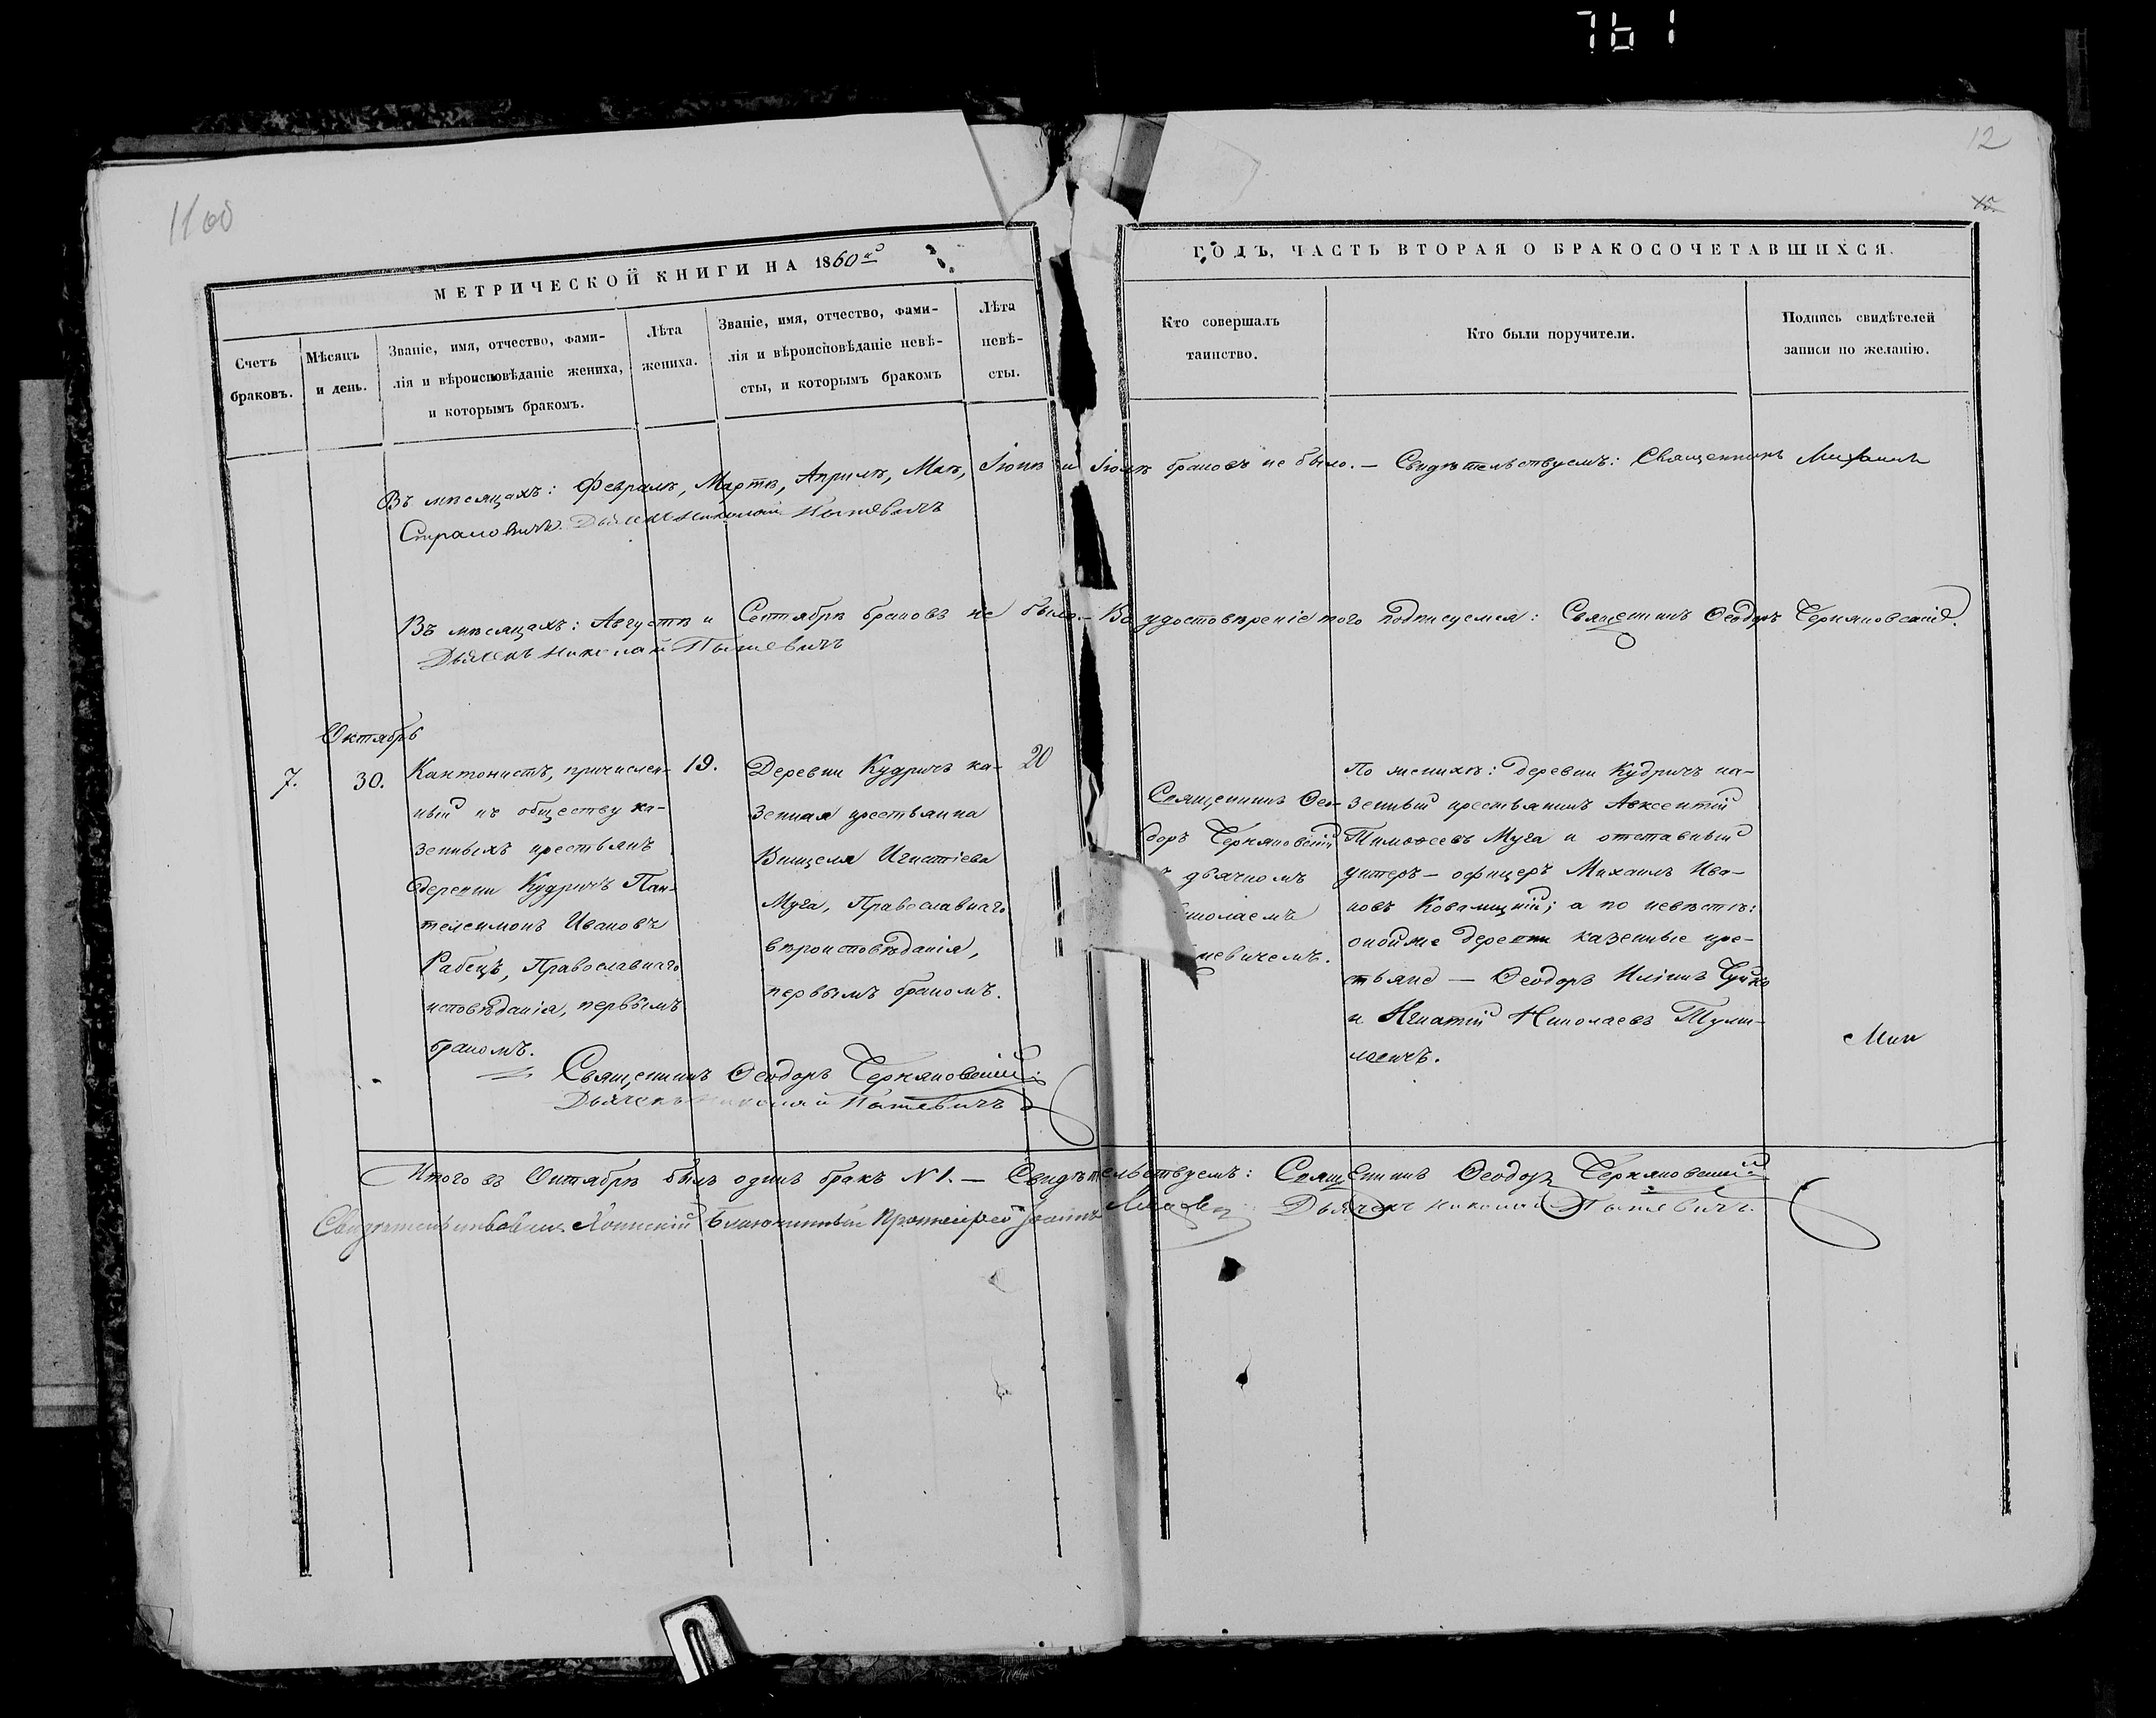 761
12
1160
МЕТРИЧЕСКОЙ КНИГИ НА 1860й
ГОДЪ, ЧАСТЬ ВТОРАЯ О БРАКОСОЧЕТАВШИХСЯ.
Счетъ
браковъ.
Мѣсяцъ
и день.
Званіе, имя, отчество, фами-
лія и вѣроисповѣданіе жениха,
и которымъ бракомъ.
Лѣта
жениха.
Званіе, имя, отчество, фами-
лія и вѣроисповѣданіе невѣ-
сты, и которымъ бракомъ
Лѣта
невѣ-
сты.
Кто совершалъ
таинство.
Кто были поручители.
Подпись свидѣтелей
записи по желанію.
Въ мѣсяцахъ: Февралѣ, Мартѣ, Априлѣ, Маѣ, Іюнѣ и Іюлѣ браковъ не было. — Свидѣтельствуемъ: Священникъ Михаилъ
Страховичъ. Дьячекъ Николай
Въ мѣсяцахъ: Августѣ и Сентябрѣ браковъ не было. — Во удостовѣреніе того подписуемся: Священникъ Ѳеодоръ Черняковскій.
Дьячекъ Николай
Октябрь
7.
30.
Кантонистъ, причислен-
ный къ обществу ка-
зенныхъ крестьянъ
деревни Кудричъ Пан-
телеимонъ Ивановъ
Рабецъ, Православнаго
исповѣданія, первымъ
бракомъ.
19.
Деревни Кудричъ ка-
зенная крестьянка
Игнатіева
Муха, Православнаго
вѣроисповѣданія,
первымъ бракомъ.
20
Священникъ Ѳео-
доръ Черняковскій
дьячкомъ
иколаемъ
невичемъ.
По женихѣ: деревни Кудричъ ка-
зенный крестьянинъ Авксентій
Тимоѳеевъ Муха и отставный
унтеръ-офицеръ Михаилъ Ива-
новъ Ковалицкій; а по невѣстѣ:
онойже деревни казенные кре-
стьяне — Ѳеодоръ Иліинъ
и Игнатій Николаевъ
Священникъ Ѳеодоръ Черняковскій
Дьячекъ Николай
Итого въ Октябрѣ былъ одинъ бракъ №1. — Свидѣтельствуемъ: Священникъ Ѳеодоръ Черняковскій
Дьячекъ Николай
Благочинный Протоіерей Іоаннъ